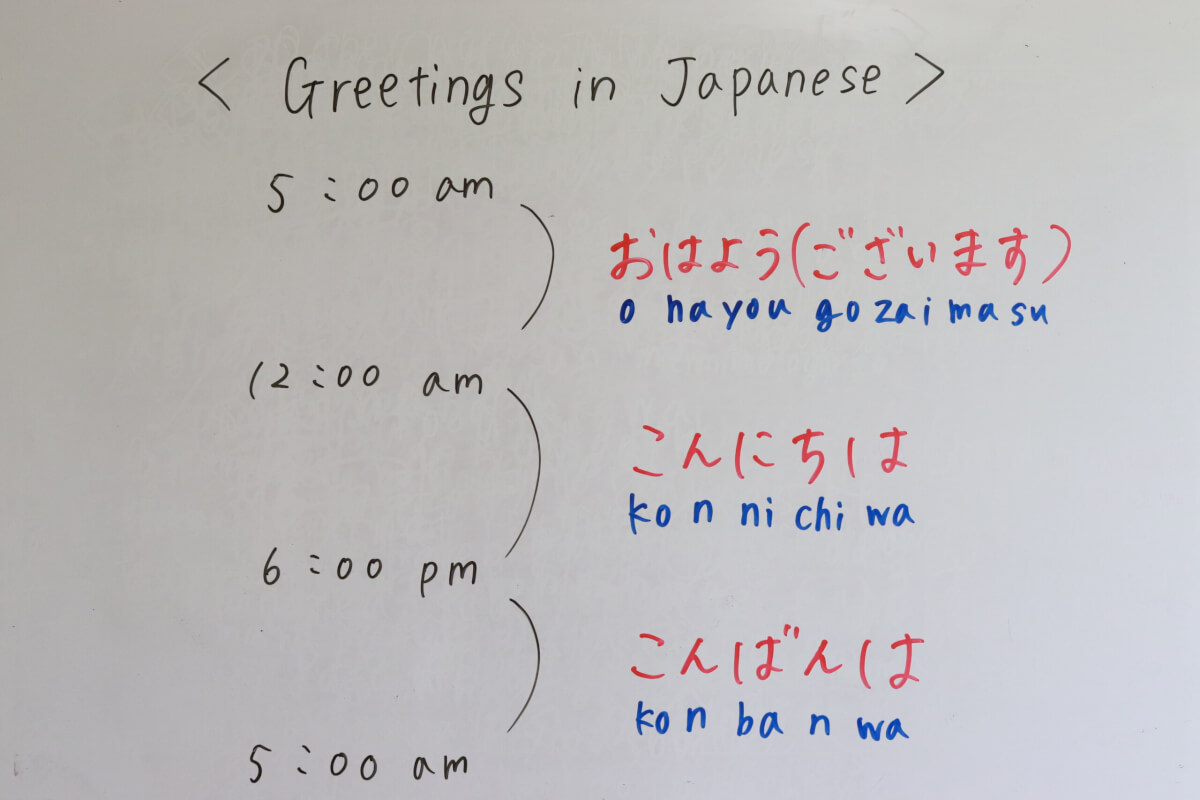 < Greetings in Japanese >
5:00 am
おはよう(ございます)
o hayou gozaimasu
12:00 am
こんにちは
kon ni chi wa
6:00 pm
こんばんは
kon ba n wa
5:00 am